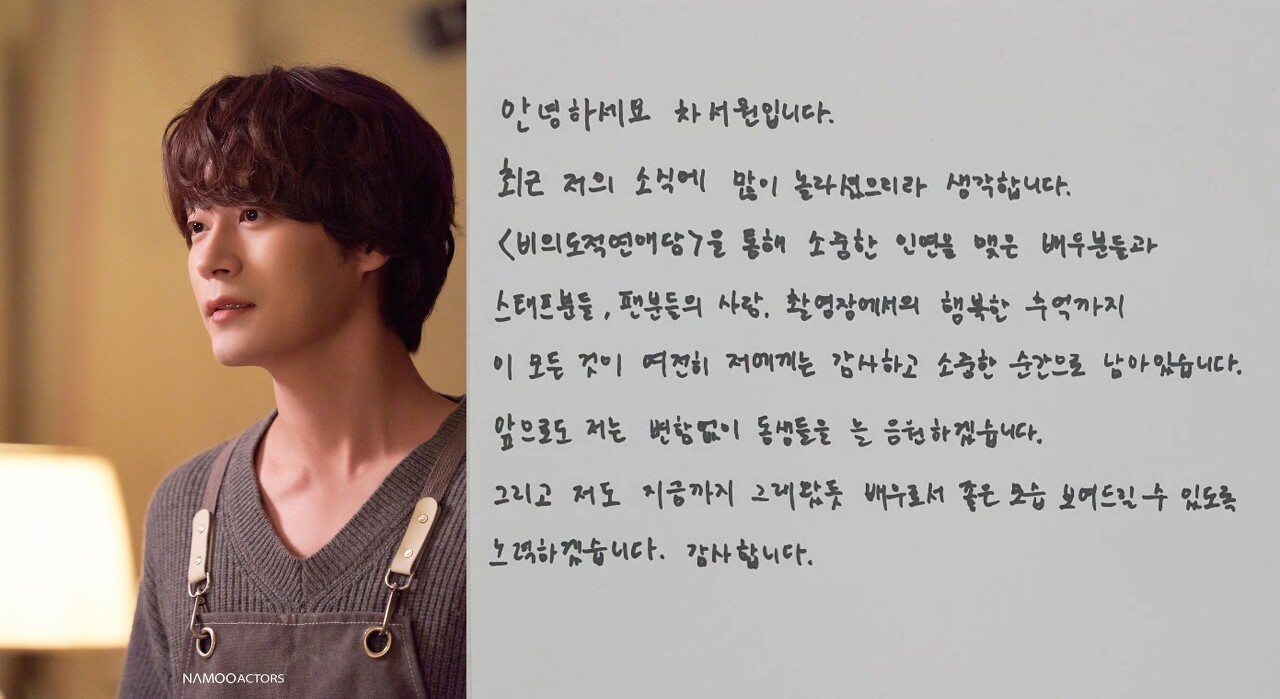 안녕하세요 차서원입니다.
최근 저의 소식에 많이 놀라셨으리라 생각합니다.
<비의도적연애담>을 통해 소중한 인연을 맺은 배우분들과
스태프분들, 팬분들의 사랑, 촬영장에서의 행복한 추억까지
이 모든 것이 여전히 저에게는 감사하고 소중한 순간으로 남아있습니다.
앞으로도 저는 변함없이 동생들을 늘 응원하겠습니다.
그리고 저도 지금까지 그래왔듯 배우로서 좋은 모습 보여드릴 수 있도록
노력하겠습니다. 감사합니다.
NAMOO ACTORS